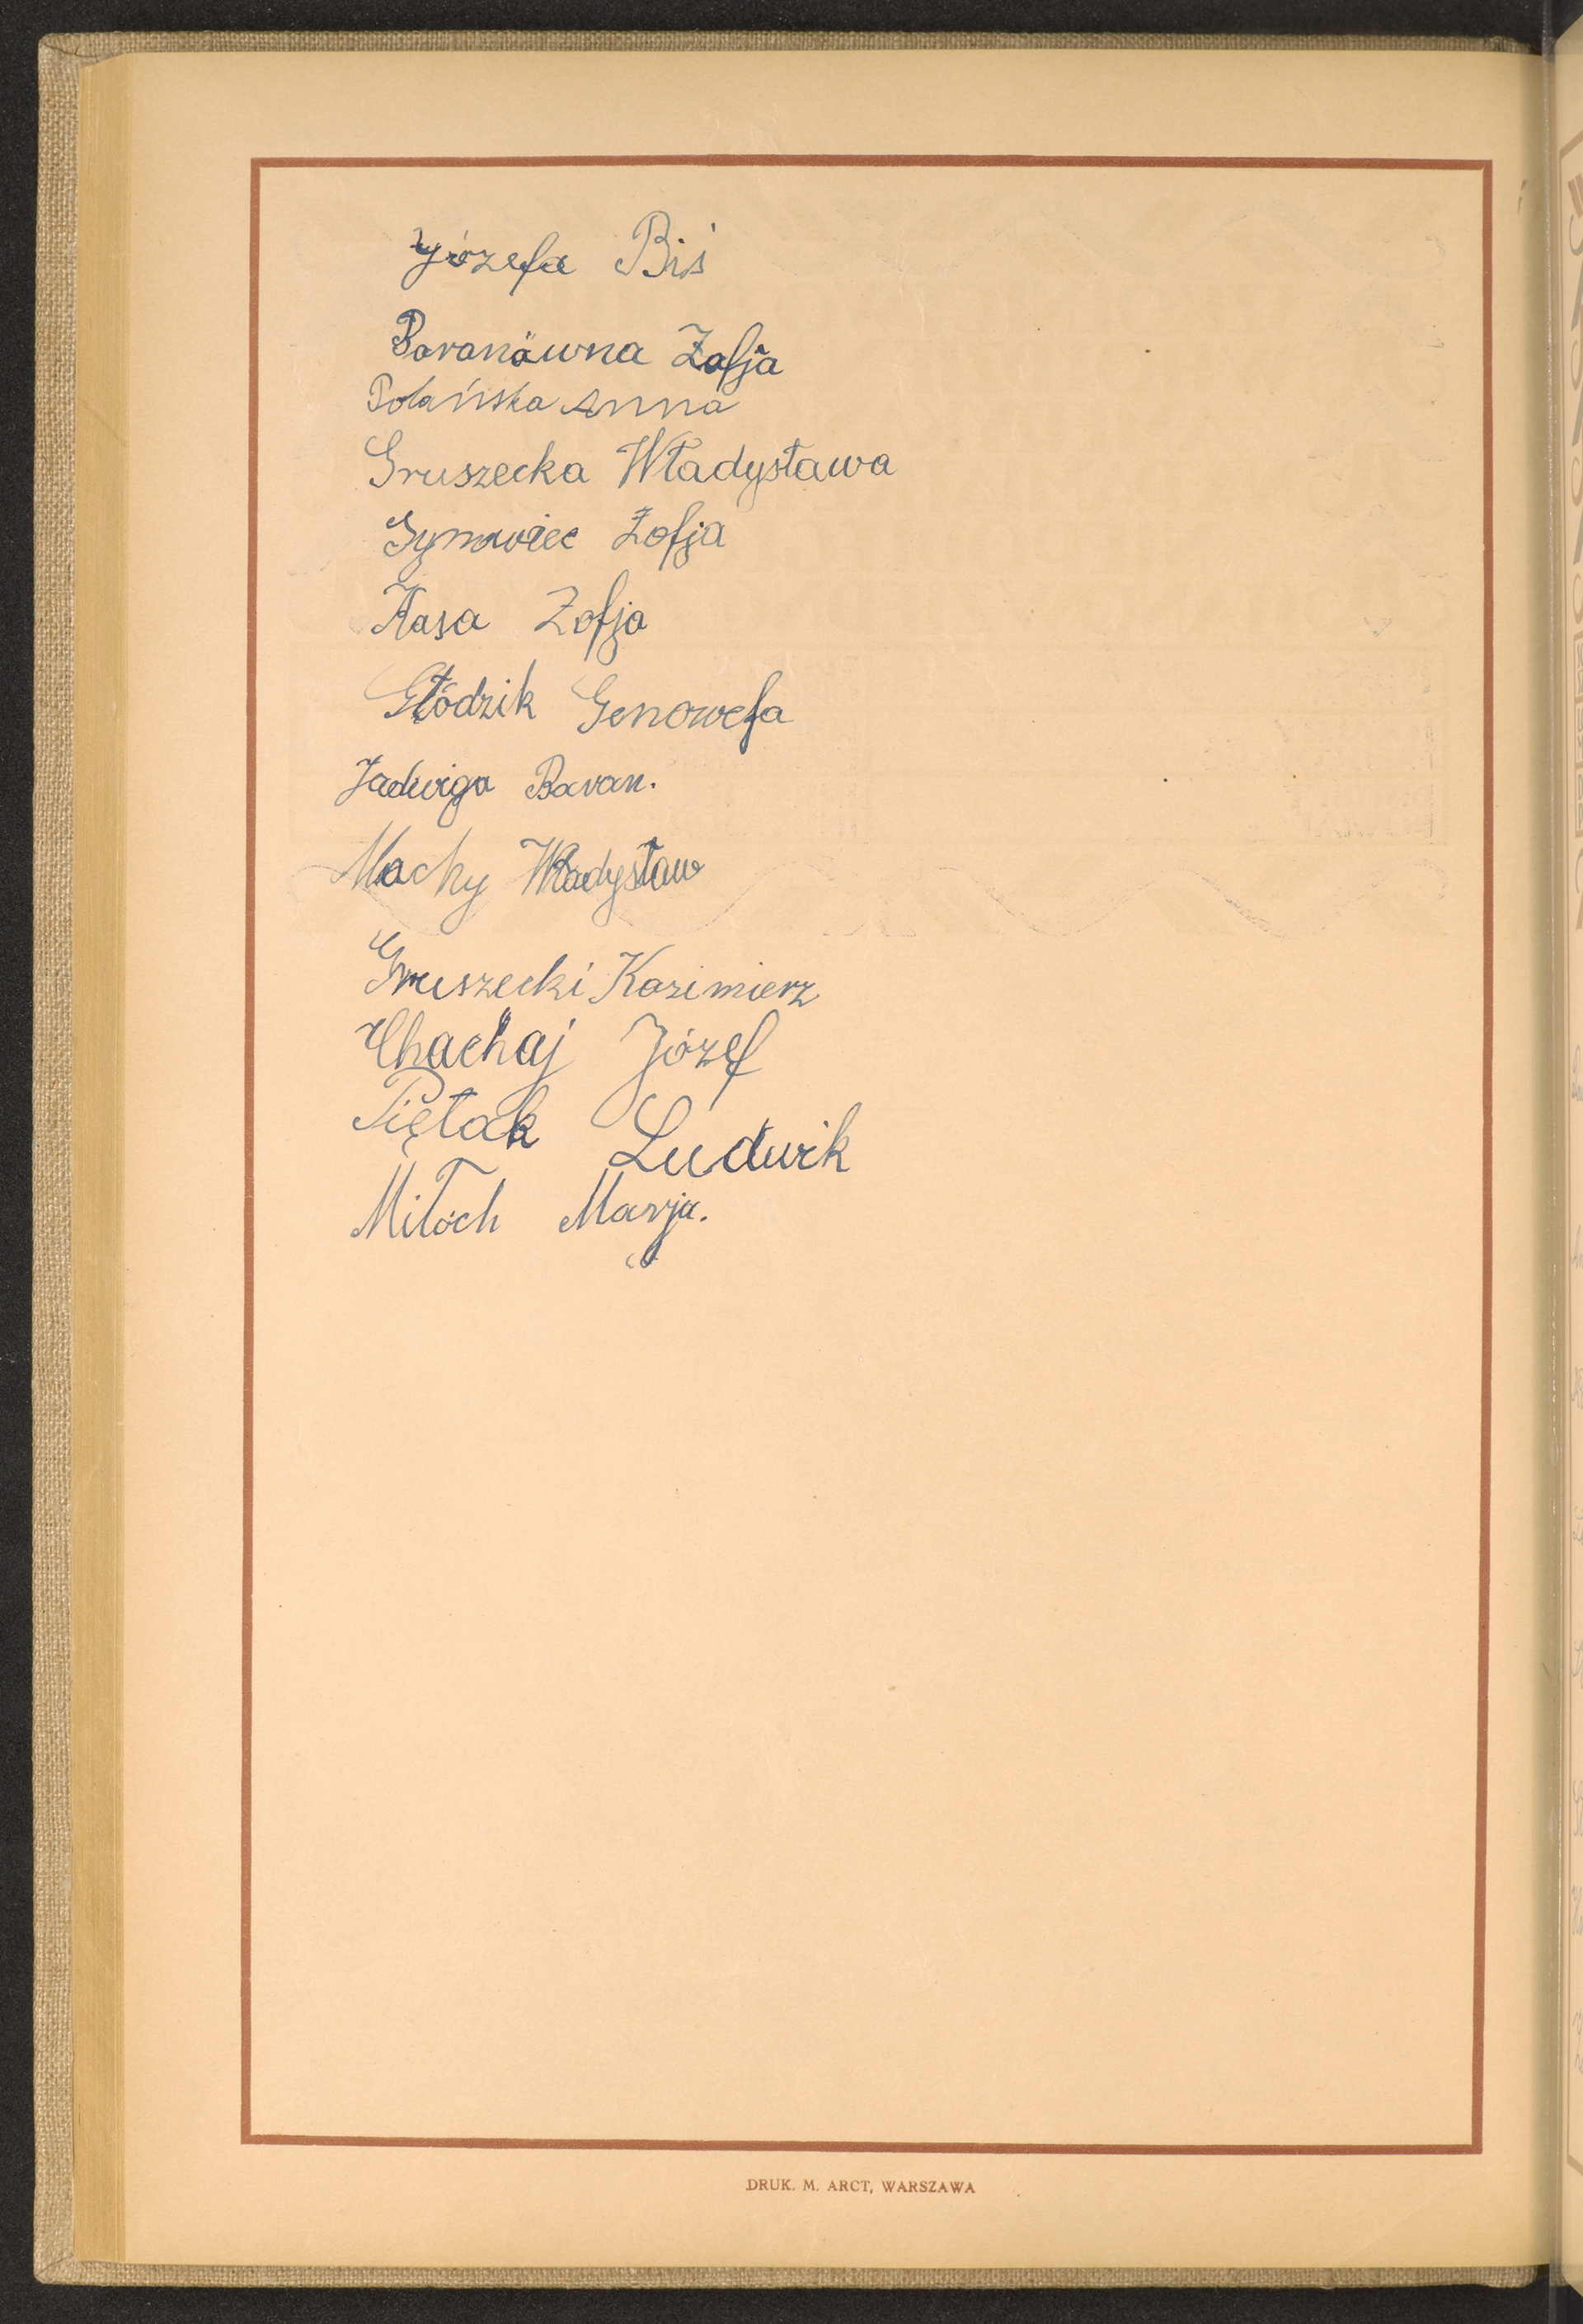 Józefa Biś
Baranówna Zofja
Polańska Anna
Gruszecka Władysława
Gymowiec Zofja
Kasa Zofja
Głódzik Genowefa
Jadwiga Baran.
Machy Władysław
Gruszecki Kazimierz
Chachaj Józef
Piętak Ludwik
Miłoch Marja.
DRUK. M. ARCT, WARSZAWA